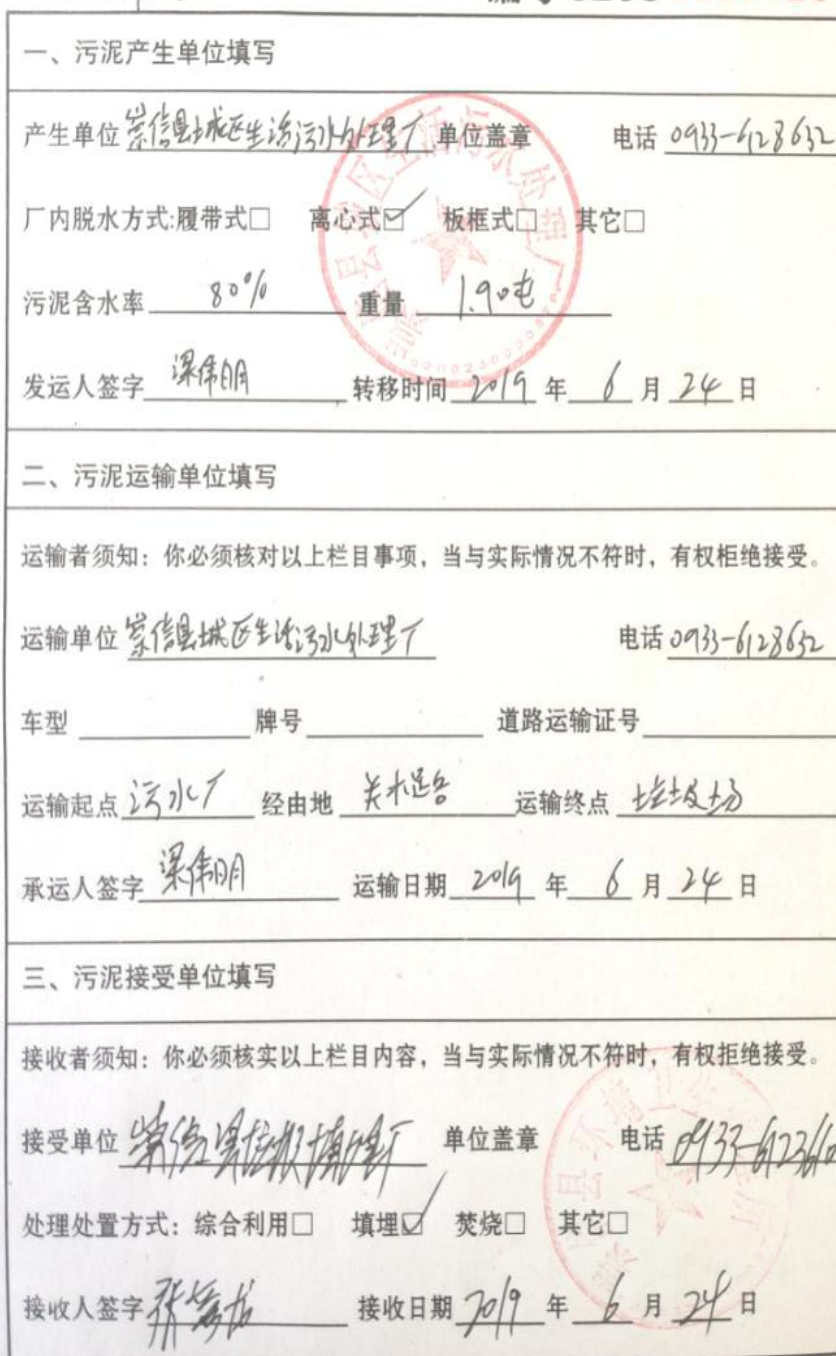 一、污泥产生单位填写
产生单位 崇信县城区生活污水处理厂 单位盖章 电话 0933-6128632
厂内脱水方式:履带式□ 离心式☑ 板框式□ 其它□
污泥含水率 80% 重量 1.90吨
发运人签字 梁伟明 转移时间 2019 年 6 月 24 日
二、污泥运输单位填写
运输者须知：你必须核对以上栏目事项，当与实际情况不符时，有权拒绝接受。
运输单位 崇信县城区生活污水处理厂 电话 0933-6128632
车型 牌号 道路运输证号
运输起点 污水厂 经由地 关村 运输终点 垃圾场
承运人签字 梁伟明 运输日期 2019 年 6 月 24 日
三、污泥接受单位填写
接收者须知：你必须核实以上栏目内容，当与实际情况不符时，有权拒绝接受。
接受单位 崇信县垃圾填埋厂 单位盖章 电话
处理处置方式：综合利用□ 填埋☑ 焚烧□ 其它□
接收人签字 接收日期 2019 年 6 月 24 日